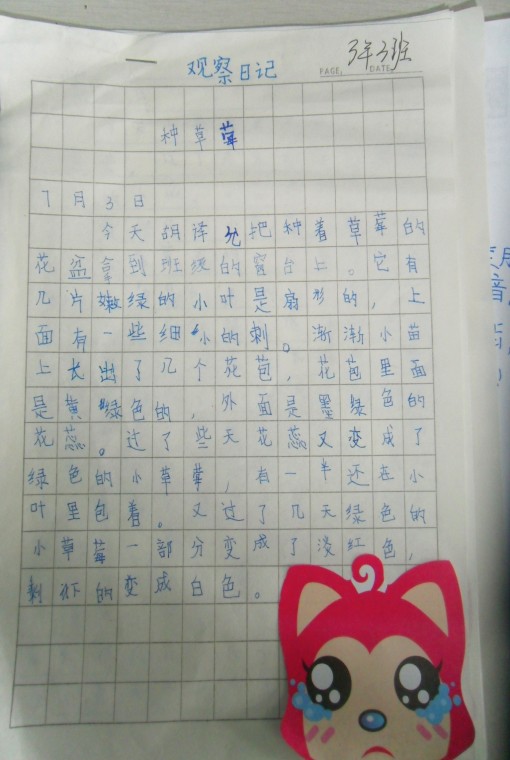 3年3班
观察日记
PAGE. DATE.
种草莓
7月3日
今天胡译允把种着草莓的
花盆拿到班级的窗台上。它有
几片嫩绿的小叶是扇形的，上
面有一些细小的刺。渐渐小苗
上长出了几个花苞，花苞里面
是黄绿色的，外面是墨绿色的
花蕊。过了些天花蕊又变成了
绿色的小草莓，有一半还在小
叶里包着。又过了几天绿色的
小草莓一部分变成了浅红色，
剩下的变成白色。
音
！